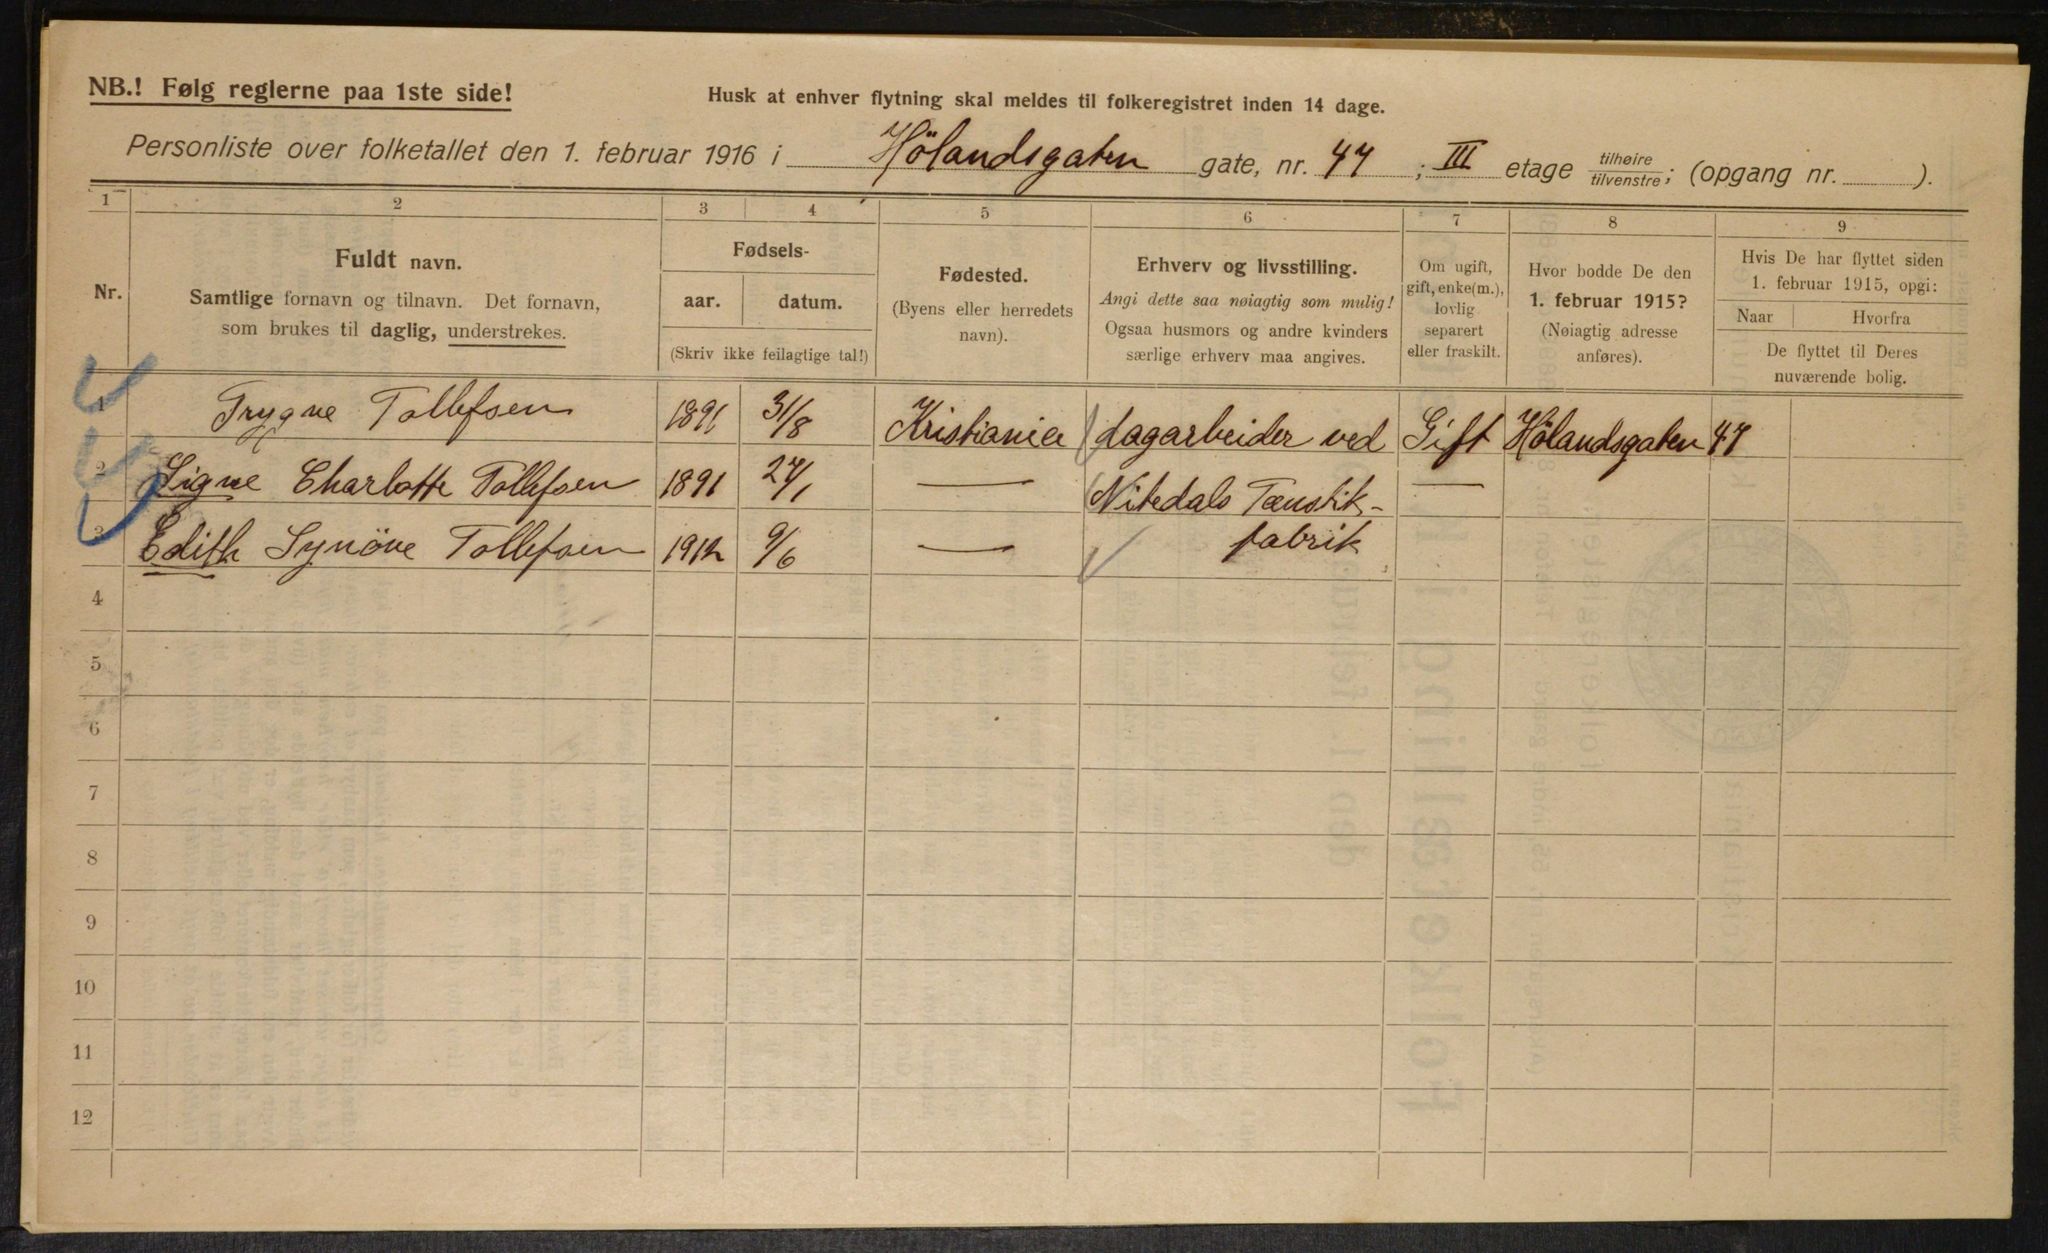 NB.! Følg reglerne paa 1ste side!
Husk at enhver flytning skal meldes til folkeregistret inden 14 dage.
Personliste over folketallet den 1. februar 1916 i Hölandsgaten gate, nr. 47; III etage tilhøire/tilvenstre; (opgang nr. ).
1 2 3 4 5 6 7 8 9
Nr.
Fuldt navn.
Samtlige fornavn og tilnavn. Det fornavn,
som brukes til daglig, understrekes.
Fødsels-
aar. datum.
(Skriv ikke feilagtige tal!)
Fødested.
(Byens eller herredets
navn).
Erhverv og livsstilling.
Angi dette saa nøiagtig som mulig!
Ogsaa husmors og andre kvinders
særlige erhverv maa angives.
Om ugift,
gift, enke(m.),
lovlig
separert
eller fraskilt.
Hvor bodde De den
1. februar 1915?
(Nøiagtig adresse
anføres).
Hvis De har flyttet siden
1. februar 1915, opgi:
Naar Hvorfra
De flyttet til Deres
nuværende bolig.
1 Trygve Tollefsen 1891 31/8 Kristiania dagarbeider ved Gift Hölandsgaten 47
2 Signe Charlotte Tollefsen 1891 27/1 — Nitedals Tænstik- —
3 Edith Synöve Tollefsen 1912 9/6 — fabrik
4
5
6
7
8
9
10
11
12